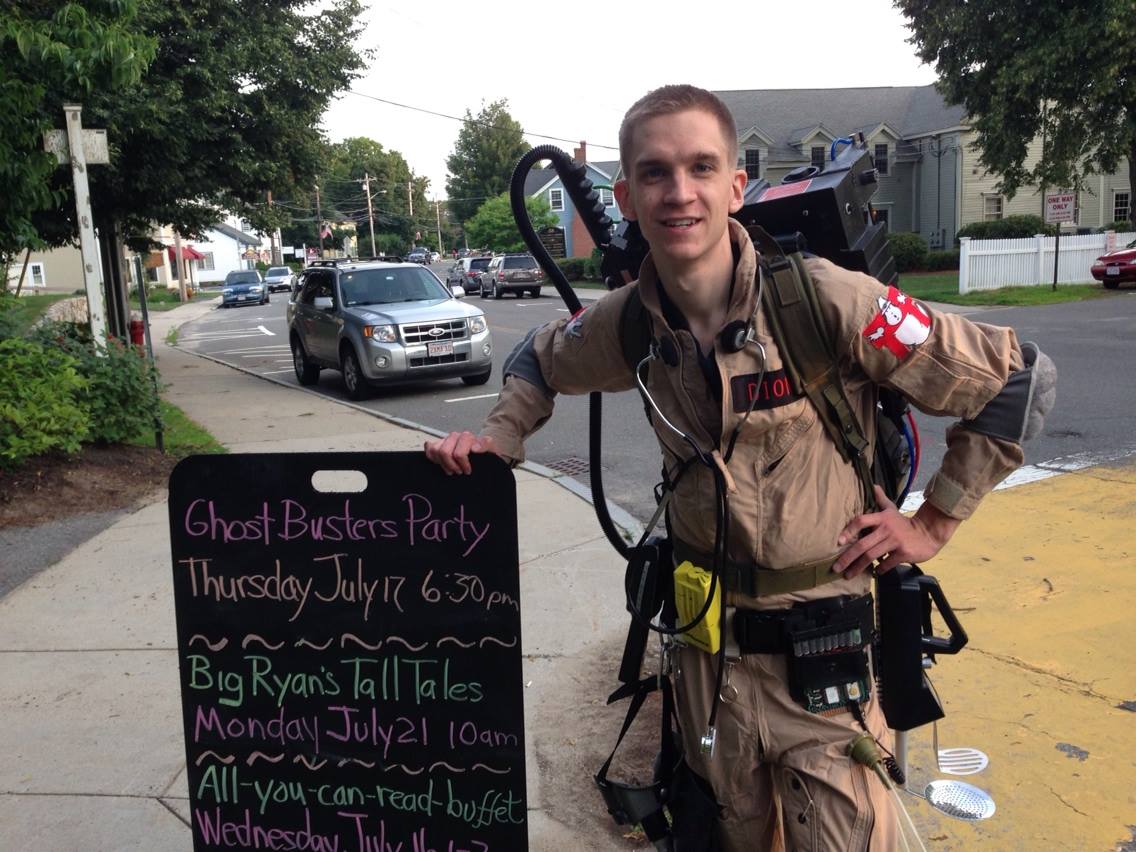 Ghost Busters Party
Thursday July 17 6:30pm
Big Ryan's Tall Tales
Monday July 21 10am
All-you-can-read-buffet
Wednesday July
DION
ONE WAY
ONLY